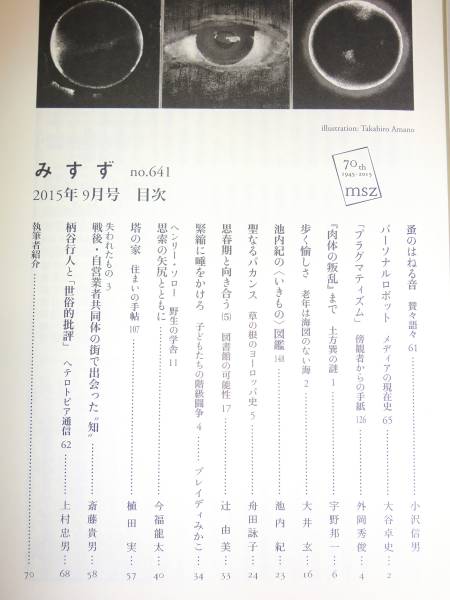 illustration: Takahiro Amano
みすず no.641
2015年9月号 目次
70th
1945-2015
msz
蚤のはねる音 賛々語々 61 …… 小沢信男 2
パーソナルロボット メディアの現在史 65 …… 大谷卓史 4
「プラグマティズム」 傍観者からの手紙 126 …… 外岡秀俊 6
『肉体の叛乱』まで 土方巽の謎 1 …… 宇野邦一
歩く愉しさ 老年は海図のない海 2 …… 大井玄 16
池内紀の〈いきもの〉図鑑 148 …… 池内紀 23
聖なるバカンス 草の根のヨーロッパ史 5 …… 舟田詠子 24
思春期と向き合う(5) 図書館の可能性 17 …… 辻由美 33
緊縮に唾をかけろ 子どもたちの階級闘争 4 …… ブレイディみかこ 34
ヘンリー・ソロー 野生の学舎 11
思索の矢尻とともに …… 今福龍太 40
塔の家 住まいの手帖 107 …… 植田実 57
失われたもの 3
戦後・自営業者共同体の街で出会った“知” …… 斎藤貴男 58
柄谷行人と「世俗的批評」 ヘテロトピア通信 62 …… 上村忠男 68
執筆者紹介 …… 79